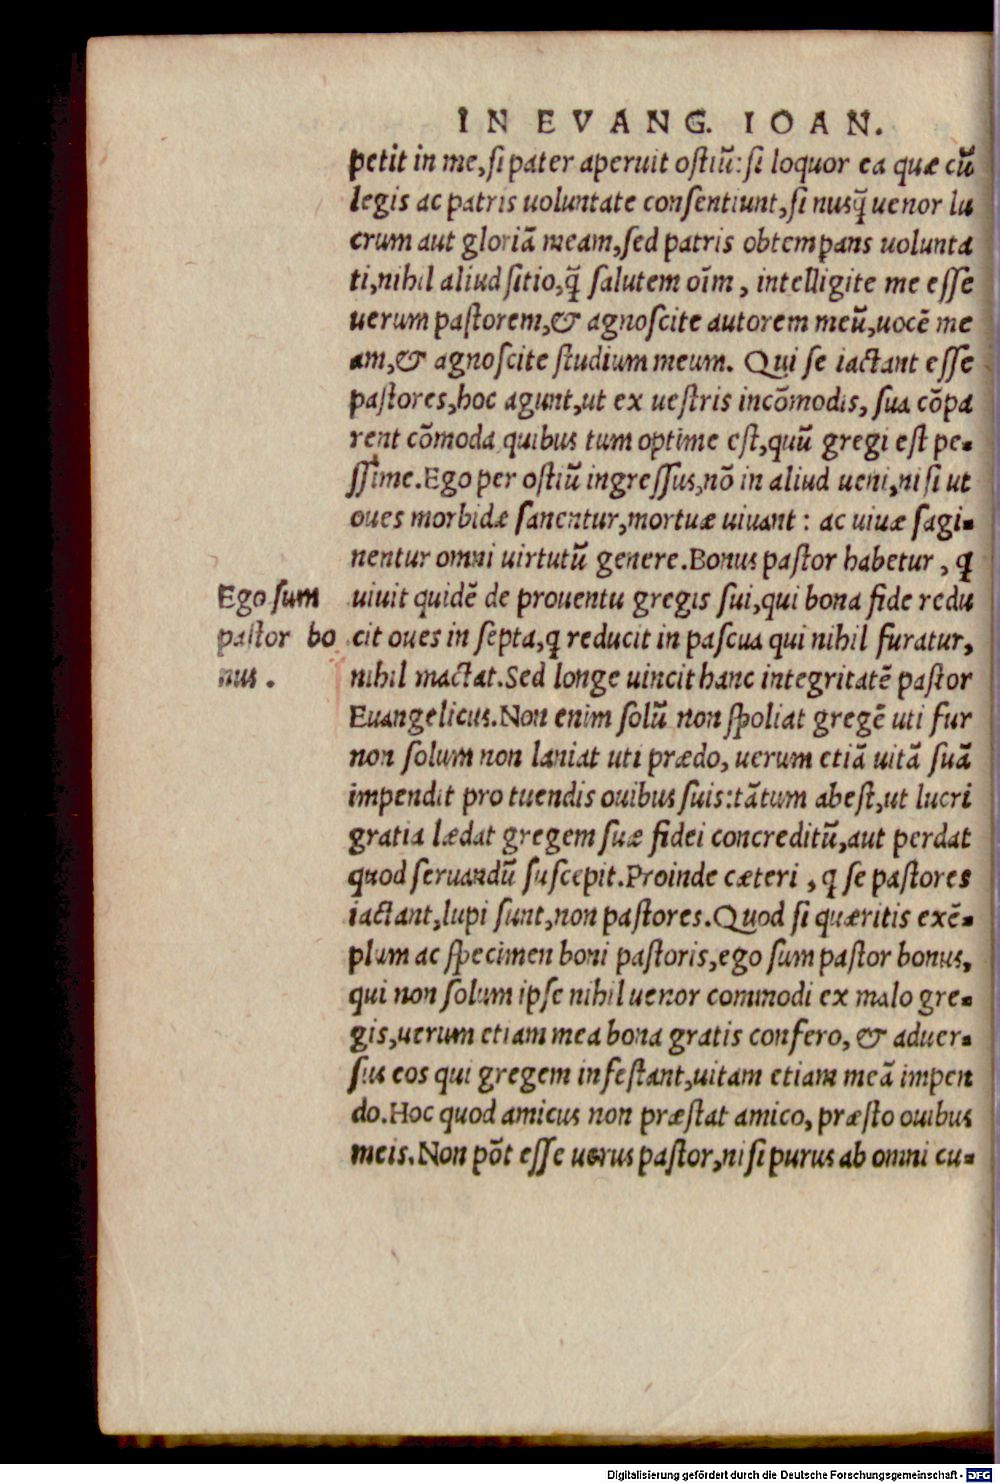 IN EVANG. IOAN.
petit in me, si pater aperuit ostiũ: si loquor ea quæ cũ
legis ac patris uoluntate consentiunt, si nusq̃ uenor lu
crum aut gloriã meam, sed patris obtemꝑans uolunta
ti, nihil aliud sitio, q̃ salutem oĩm, intelligite me esse
uerum pastorem, & agnoscite autorem meũ, uocẽ me
am, & agnoscite studium meum. Qui se iactant esse
pastores, hoc agunt, ut ex uestris incõmodis, sua cõpa
rent cõmoda quibus tum optime est, quũ gregi est pe-
ssime. Ego per ostiũ ingressus, nõ in aliud ueni, nisi ut
oues morbidæ sanentur, mortuæ uiuant: ac uiuæ sagi-
nentur omni uirtutũ genere. Bonus pastor habetur, q
uiuit quidẽ de prouentu gregis sui, qui bona fide redu
cit oues in septa, q reducit in pascua qui nihil furatur,
nihil mactat. Sed longe uincit hanc integritatẽ pastor
Euangelicus. Non enim solũ non spoliat gregẽ uti fur
non solum non laniat uti prædo, uerum etiã uitã suã
impendit pro tuendis ouibus suis: tãtum abest, ut lucri
gratia lædat gregem suæ fidei concreditũ, aut perdat
quod seruandũ suscepit. Proinde cæteri, q se pastores
iactant, lupi sunt, non pastores. Quod si quæritis exẽ-
plum ac specimen boni pastoris, ego sum pastor bonus,
qui non solum ipse nihil uenor commodi ex malo gre-
gis, uerum etiam mea bona gratis confero, & aduer-
sus eos qui gregem infestant, uitam etiam meã impen
do. Hoc quod amicus non præstat amico, præsto ouibus
meis. Non põt esse uerus pastor, nisi purus ab omni cu-
Ego sum
pastor bo
nus.
Digitalisierung gefördert durch die Deutsche Forschungsgemeinschaft - DFG